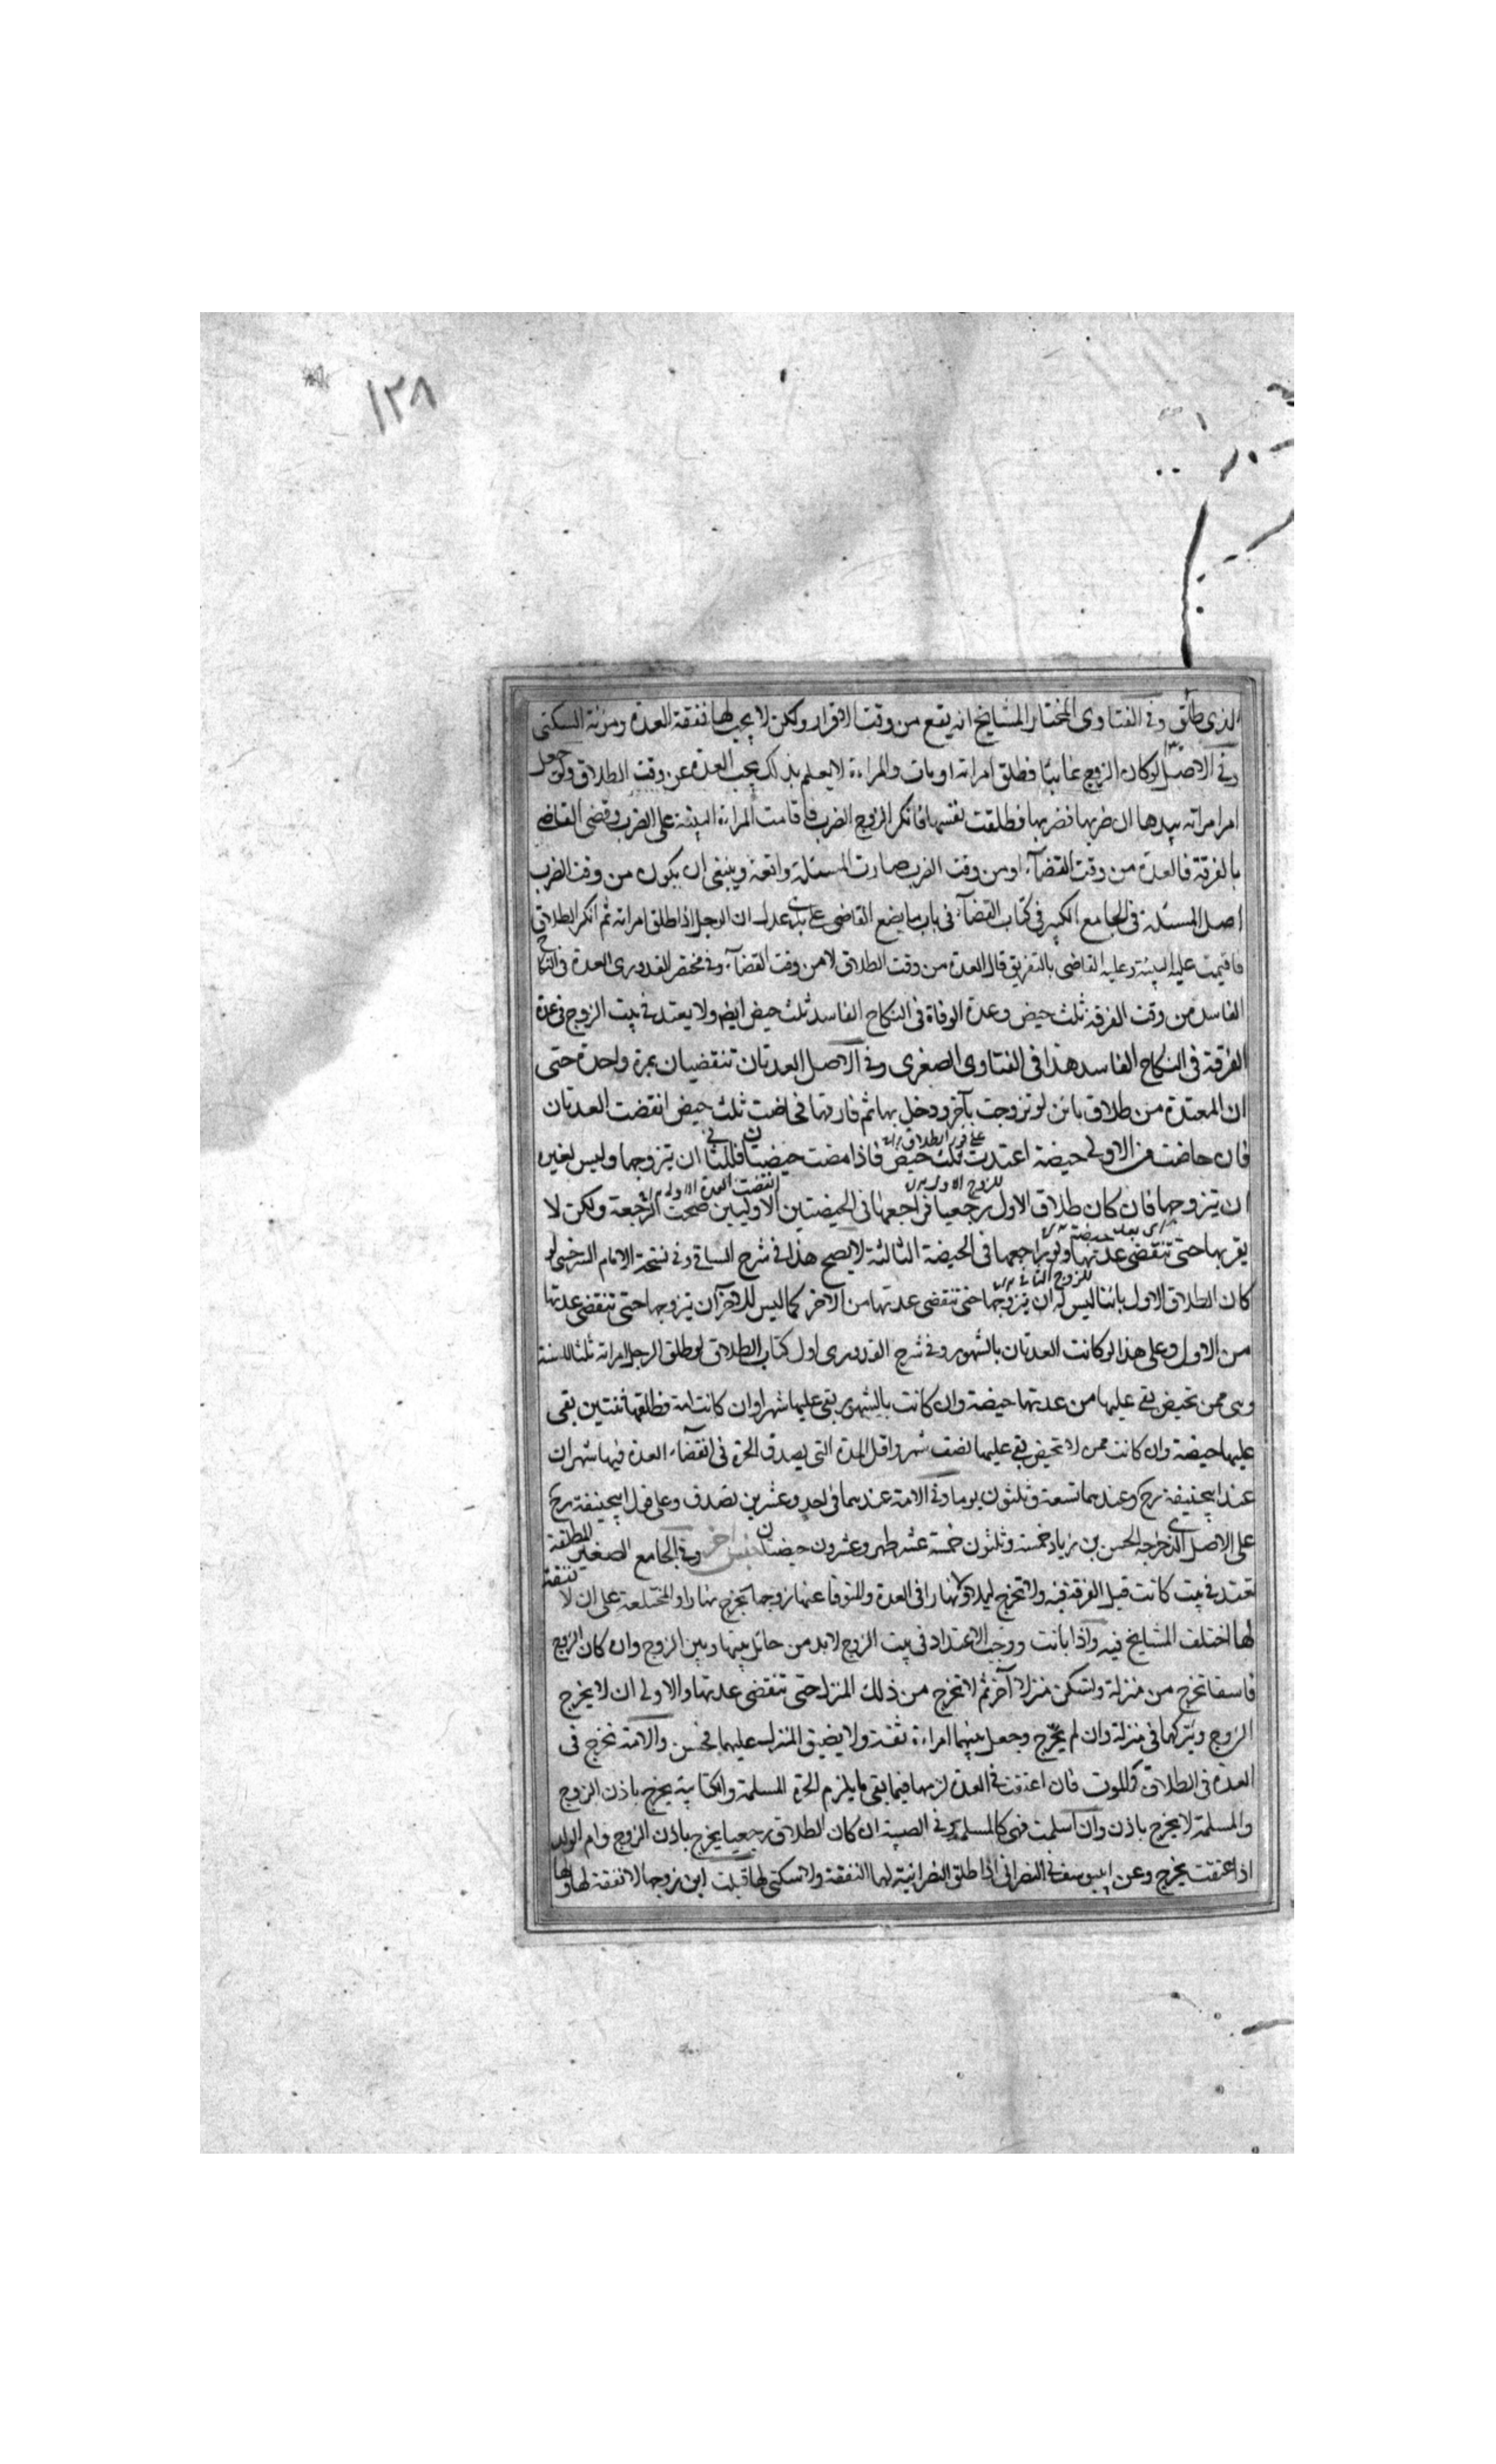 ١٢٨
الذى طلق وفى الفتاوى المختار المشايخ انه يقع من وقت الاقرار ولكن لا يجب لها نفقة العدة ومؤنة السكنى
وفى الاصل لو كان الزوج غائبا فطلق امراته او مات والمراءة لا يعلم بذلك يجب العدة عن وقت الطلاق ولو جعل
امر امراته بيدها ان ضربها فضربها فطلقت نفسها فانكر الزوج الضرب فاقامت المراءة البينة على الضرب وقضى القاضى
بالفرقة فالعدة من وقت القضآء او من وقت الضرب صارت المسئلة واقعة وينبغى ان يكون من وقت الضرب
اصل المسئلة فى الجامع الكبير فى كتاب القضآء فى باب ما يضع القاضى على يدى عدل ان الرجل اذا طلق امراته ثم انكر الطلاق
فاقيمت عليه البينة وعليه القاضى بالتفريق قال العدة من وقت الطلاق لا من وقت القضآء وفى مختصر القدورى العدة فى النكاح
الفاسد من وقت الفرقة ثلث حيض وعدة الوفاة فى النكاح الفاسد ثلث حيض ايضا ولا يعتد فى بيت الزوج فى عدة
الفرقة فى النكاح الفاسد هذا فى الفتاوى الصغرى وفى الاصل العدتان تنقضيان بمرة واحدة حتى
ان المعتدة من طلاق بائن لو تزوجت بآخر ودخل بها ثم فارقها فحاضت ثلث حيض انقضت العدتان
فان حاضت من الاولى حيضة اعتدت ثلث حيض فاذا مضت حيضتان فللثانى ان يتزوجها وليس لغيره
ان يتزوجها فان كان طلاق الاول رجعيا فراجعها فى الحيضتين الاوليين صحت الرجعة ولكن لا
يقربها حتى تنقضى عدتها ولو راجعها فى الحيضة الثالثة لا يصح هذا فى شرح الساقى وفى نسخة الامام السرخسى لو
كان الطلاق الاول بائنا ليس له ان يتزوجها حتى تنقضى عدتها من الآخر كما ليس للآخر ان يتزوجها حتى تنقضى عدتها
من الاول وعلى هذا لو كانت العدتان بالشهور وفى شرح القدورى اول كتاب الطلاق لو طلق الرجل امراته ثلثا للسنة
وهى ممن تحيض بقى عليها من عدتها حيضة وان كانت بالشهور بقى عليها شهر وان كانت امة فطلقها ثنتين بقى
عليها حيضة وان كانت ممن لا تحيض بقى عليها نصف شهر واقل المدة التى يصدق الحرة فى انقضآء العدة فيها شهران
عند ابيحنيفة رح وعندهما تسعة وثلثون يوما وفى الامة عندهما فى احد وعشرين تصدق وعلى قول ابيحنيفة رح
على الاصل الذى خرجه الحسن بن زياد خمسة وثلثون خمسة عشر طهر وعشرون حيضتان وفى الجامع الصغير المطلقة
تعتد فى بيت كانت قبل الفرقة فيه ولا تخرج ليلا ولا نهارا فى العدة والمتوفا عنها زوجها تخرج نهارا والمختلعة على ان لا نفقة
لها اختلف المشايخ فيه واذا بانت ووجب الاعتداد فى بيت الزوج لا بد من حائل بينها وبين الزوج وان كان الزوج
فاسقا تخرج من منزله وتسكن منزلا آخر ثم لا تخرج من ذلك المنزل حتى تنقضى عدتها والاولى ان لا يخرج
الزوج ويتركها فى منزله وان لم يخرج وجعل بينهما امراءة ثقة ولا يضيق المنزل عليهما فحسن والامة تخرج فى
العدة فى الطلاق والموت فان اعتقت فى العدة لزمها فيما بقى ما يلزم الحرة المسلمة والكتابية يخرج باذن الزوج
والمسلمة لا يخرج باذن وان اسلمت فهى كالمسلمة وفى الصبية ان كان الطلاق رجعيا يخرج باذن الزوج وام الولد
اذا عتقت يخرج وعن ابيوسف فى النصرانى اذا طلق النصرانية لها النفقة ولا سكنى لها قبلت ابن زوجها لا نفقة لها ولها